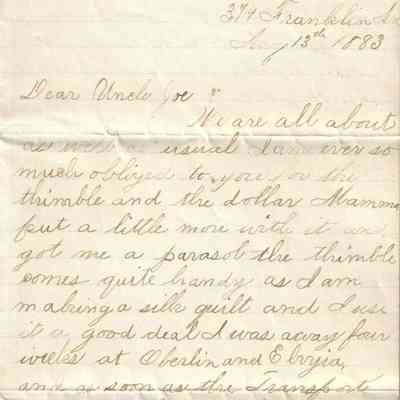 374 Franklin
13th 1883
Dear Uncle Joe
We are all about
as well as usual I am ever so
much obliged to you for the
thimble and the dollar Mamma
put a little more with it an
got me a parasol the thimble
comes quite handy as I am
making a silk quilt and I use
it a good deal I was away four
weeks at Oberlin and Elryia,
and as soon as the Transport